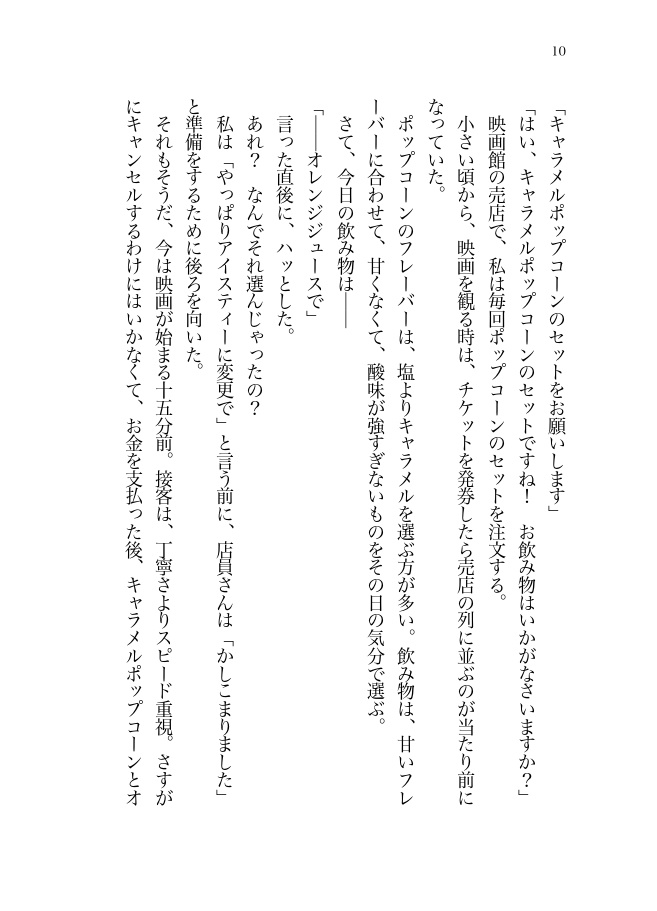 10
「キャラメルポップコーンのセットをお願いします」
「はい、キャラメルポップコーンのセットですね！　お飲み物はいかがなさいますか？」
　映画館の売店で、私は毎回ポップコーンのセットを注文する。
　小さい頃から、映画を観る時は、チケットを発券したら売店の列に並ぶのが当たり前に
なっていた。
　ポップコーンのフレーバーは、塩よりキャラメルを選ぶ方が多い。飲み物は、甘いフレ
ーバーに合わせて、甘くなくて、酸味が強すぎないものをその日の気分で選ぶ。
　さて、今日の飲み物は――
「――オレンジジュースで」
　言った直後に、ハッとした。
　あれ？　なんでそれ選んじゃったの？
　私は「やっぱりアイスティーに変更で」と言う前に、店員さんは「かしこまりました」
と準備をするために後ろを向いた。
　それもそうだ、今は映画が始まる十五分前。接客は、丁寧さよりスピード重視。さすが
にキャンセルするわけにはいかなくて、お金を支払った後、キャラメルポップコーンとオ